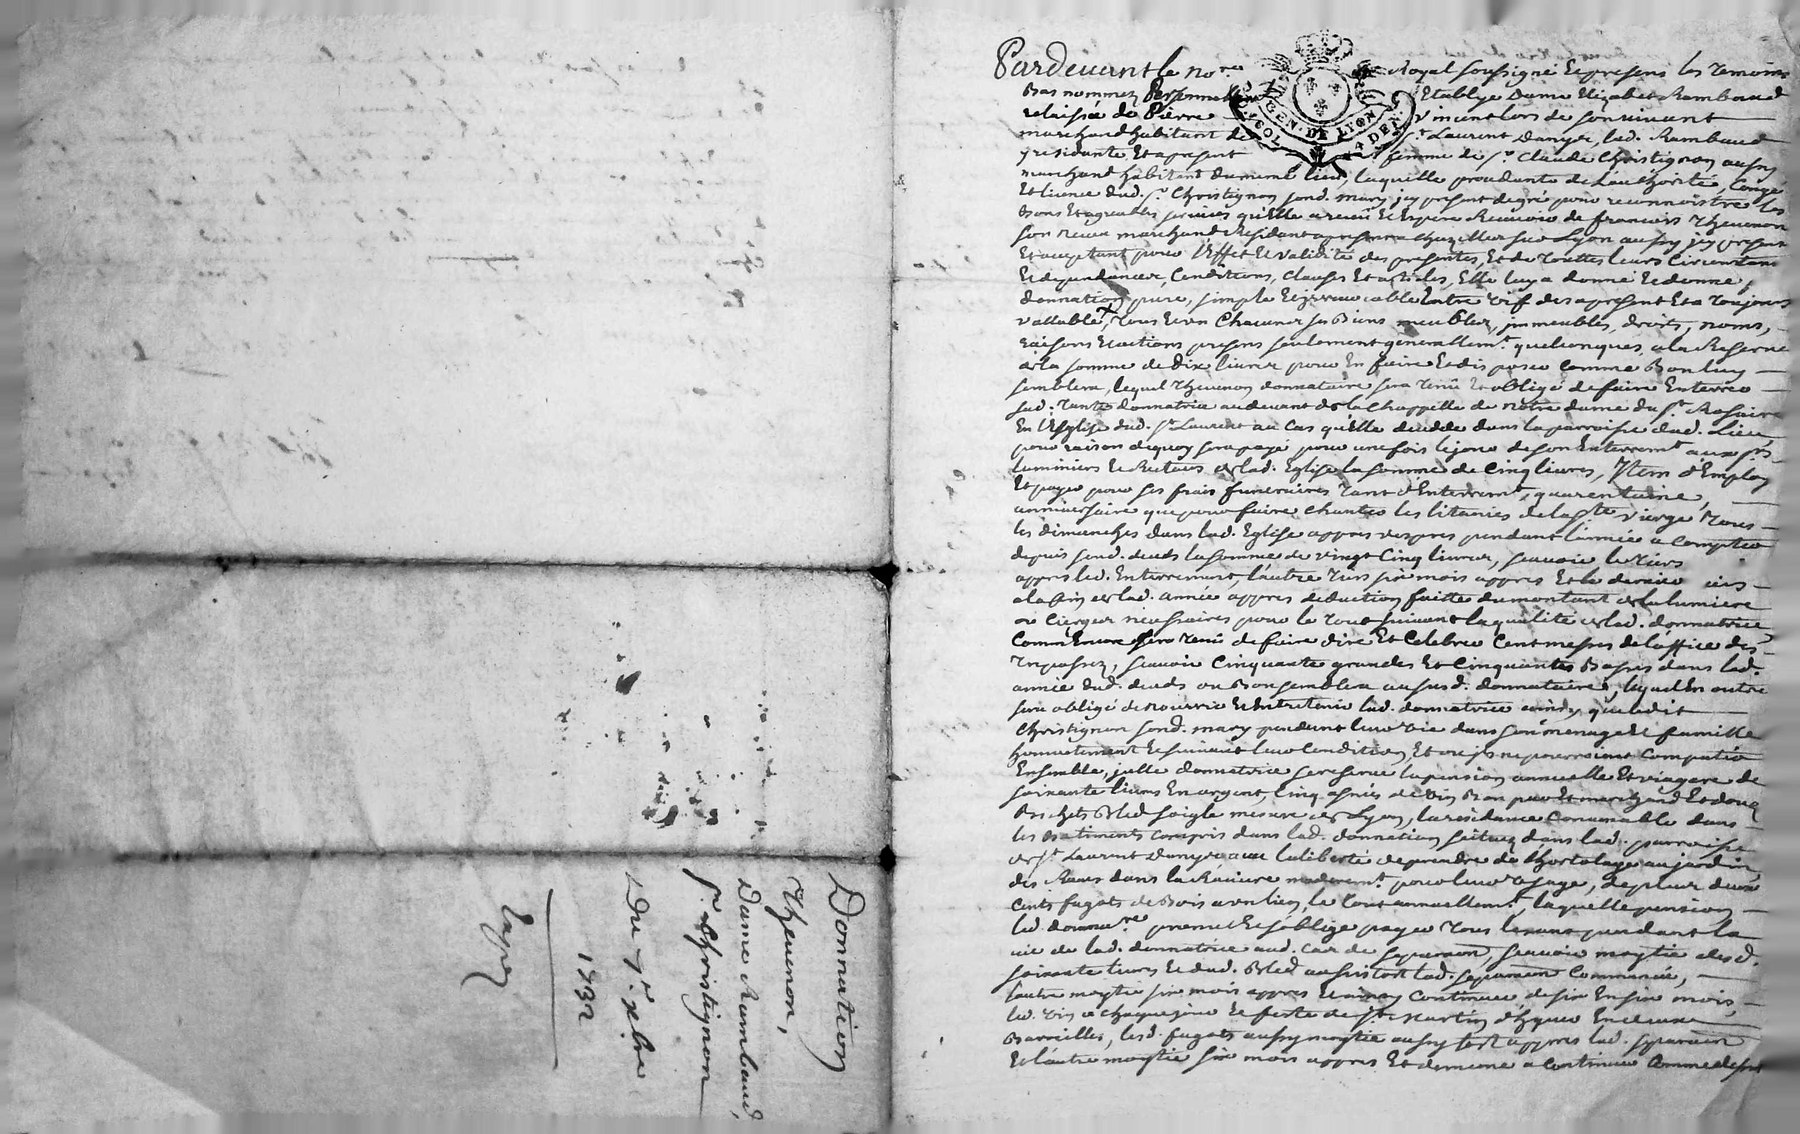 Donnation
Thevenon,
Dame Rambaud,
sr. Christignon
Du 7e. xbre
1732
Pardevant le nore Royal soussigné Et presens les temoins
Bas nommez Personnellem Etablye Dame Elizabet Rambaud
relaissée de Pierre Vincent lors de son vivant
marchand habitant de st. Laurent Danyer, lad. Rambaud
y residante Et apresent femme de sr. Claude Christignon aussy
marchand habitant du meme lieu, laquelle procedante de L'authorité, Congé
Et licence dud. sr. Christignon son d. mary jcy present de gré pour reconnoistre les
Bons Et agreables services qu'Elle a receu Et Espere Recevoir de francois Thevenon
son neveu marchand Residant apresent a chazelles sur Lyon aussy jcy present
Et acceptant pour l'Effet Et validité des presentes, Et de Touttes leurs Circonstances
Et dependances, Conditions, Clauses Et articles, Elle luy a donné Et donne,
donnation pure, simple Et jrrevocable Entre vifs des apresent Et a Toujours
vallable, Tous Et un Chacuns ses Biens meubles, jmmeubles, droits, noms,
raisons Et actions presens seulement generallemt. quelconques, a la Reserve
de la somme de dix livres pour En faire Et disposer Comme Bon luy
semblera, lequel Thevenon donnataire sera tenu Et obligé de faire Enterrer
lad. Tante donnatrice au devant de la Chappelle de notre dame du st. Rosaire
En l'Esglise dud. st. Laurent au Cas qu'Elle decedde dans la parroisse dud. Lieu
pour raison de quoy sera payé pour une fois le jour de son Enterremt. aux srs.
luminiers Et Recteurs de lad. Eglise la somme de Cinq livres, Item d'Employer
Et payer pour ses frais funeraires Tant d'Enterremt., quarentaine,
anniversaire que pour faire chanter les litanies de la ste vierge Tous
les dimanches dans lad. Eglise appres vespres pendant l'année a Compter
depuis son d. deceds la somme de vingt Cinq livres, scavoir le Tiers
appres led. Enterrement, l'autre Tiers six mois appres Et le dernier tiers
a la fin de lad. année appres deduction faitte du montant de la lumiere
ou Cierges necessaires pour le Tout suivant la qualité de lad. donnatrice
Comm'Encore sera Tenu de faire dire Et Celebrer Cent messes de l'office des
Trepassez, scavoir Cinquante grandes Et Cinquante Basses dans lad.
année dud. deceds ou Bon semblera au susd. donnataire, lequel En outre
sera obligé de nourrir Et Entretenir lad. donnatrice ainsy que ledit
Christignon son d. mary pendant leur vie dans son menage Et famille
honnettement Et suivant leur Condition, Et ou jls ne pourroient Compatir
Ensemble, jcelle donnatrice se reserve la pension annuelle Et viagere de
soixante livres En argent, Cinq asnées de vin Bon pur Et marchand Et douze
Bichets Bled soigle mesure de Lyon, la residance Convenable dans
les Batiments Compris dans lad. donnation scituez dans lad. parroisse
de st. Laurent Danyer avec la liberté de prendre de l'hortolage au jardin,
des Raves dans la Raviere moderemt. pour leur usage, de plus deux
Cents fagots de Bois a un lien, le tout annuellemt., laquelle pension
led. donnare. promet Et s'oblige payer Tous les ans pendant la
vie de lad. donnatrice aud. Cas de separaon, scavoir moytié desd.
soixante livres Et dud. Bled aussitost lad. separaon Commencée,
l'autre moytié six mois appres Et ainsy Continuer de six En six mois,
led. vin a chaque jour Et feste de st. Martin d'hyver En deux
Barreilles, lesd. fagots aussy moytié aussy tost appres lad. separaon
Et l'autre moytié six mois appres Et de meme a Continuer Comme dessus